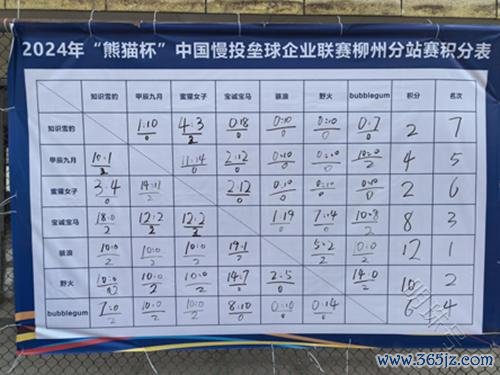 2024年“熊猫杯”中国慢投垒球企业联赛柳州分站赛积分表
知识雪豹 甲辰九月 蜜獾女子 宝诚宝马 骇浪 野火 bubblegum 积分 名次
知识雪豹 1:10/0 4:3/2 0:18/0 0:10/0 0:10/0 0:7/0 2 7
甲辰九月 10:1/2 11:14/0 2:12/0 0:10/0 0:10/0 10:0/2 4 5
蜜獾女子 3:4/0 14:11/2 2:12/0 0:10/0 0:10/0 0:10/0 2 6
宝诚宝马 18:0/2 12:2/2 12:2/2 1:19/0 7:14/0 10:8/2 8 3
骇浪 10:0/2 10:0/2 10:0/2 19:1/2 5:2/2 10:0/2 12 1
野火 10:0/2 10:0/2 10:0/2 14:7/2 2:5/0 14:0/2 10 2
bubblegum 7:0/2 10:0/2 10:0/2 8:10/0 0:10/0 0:14/0 6 4
www.365jz.com